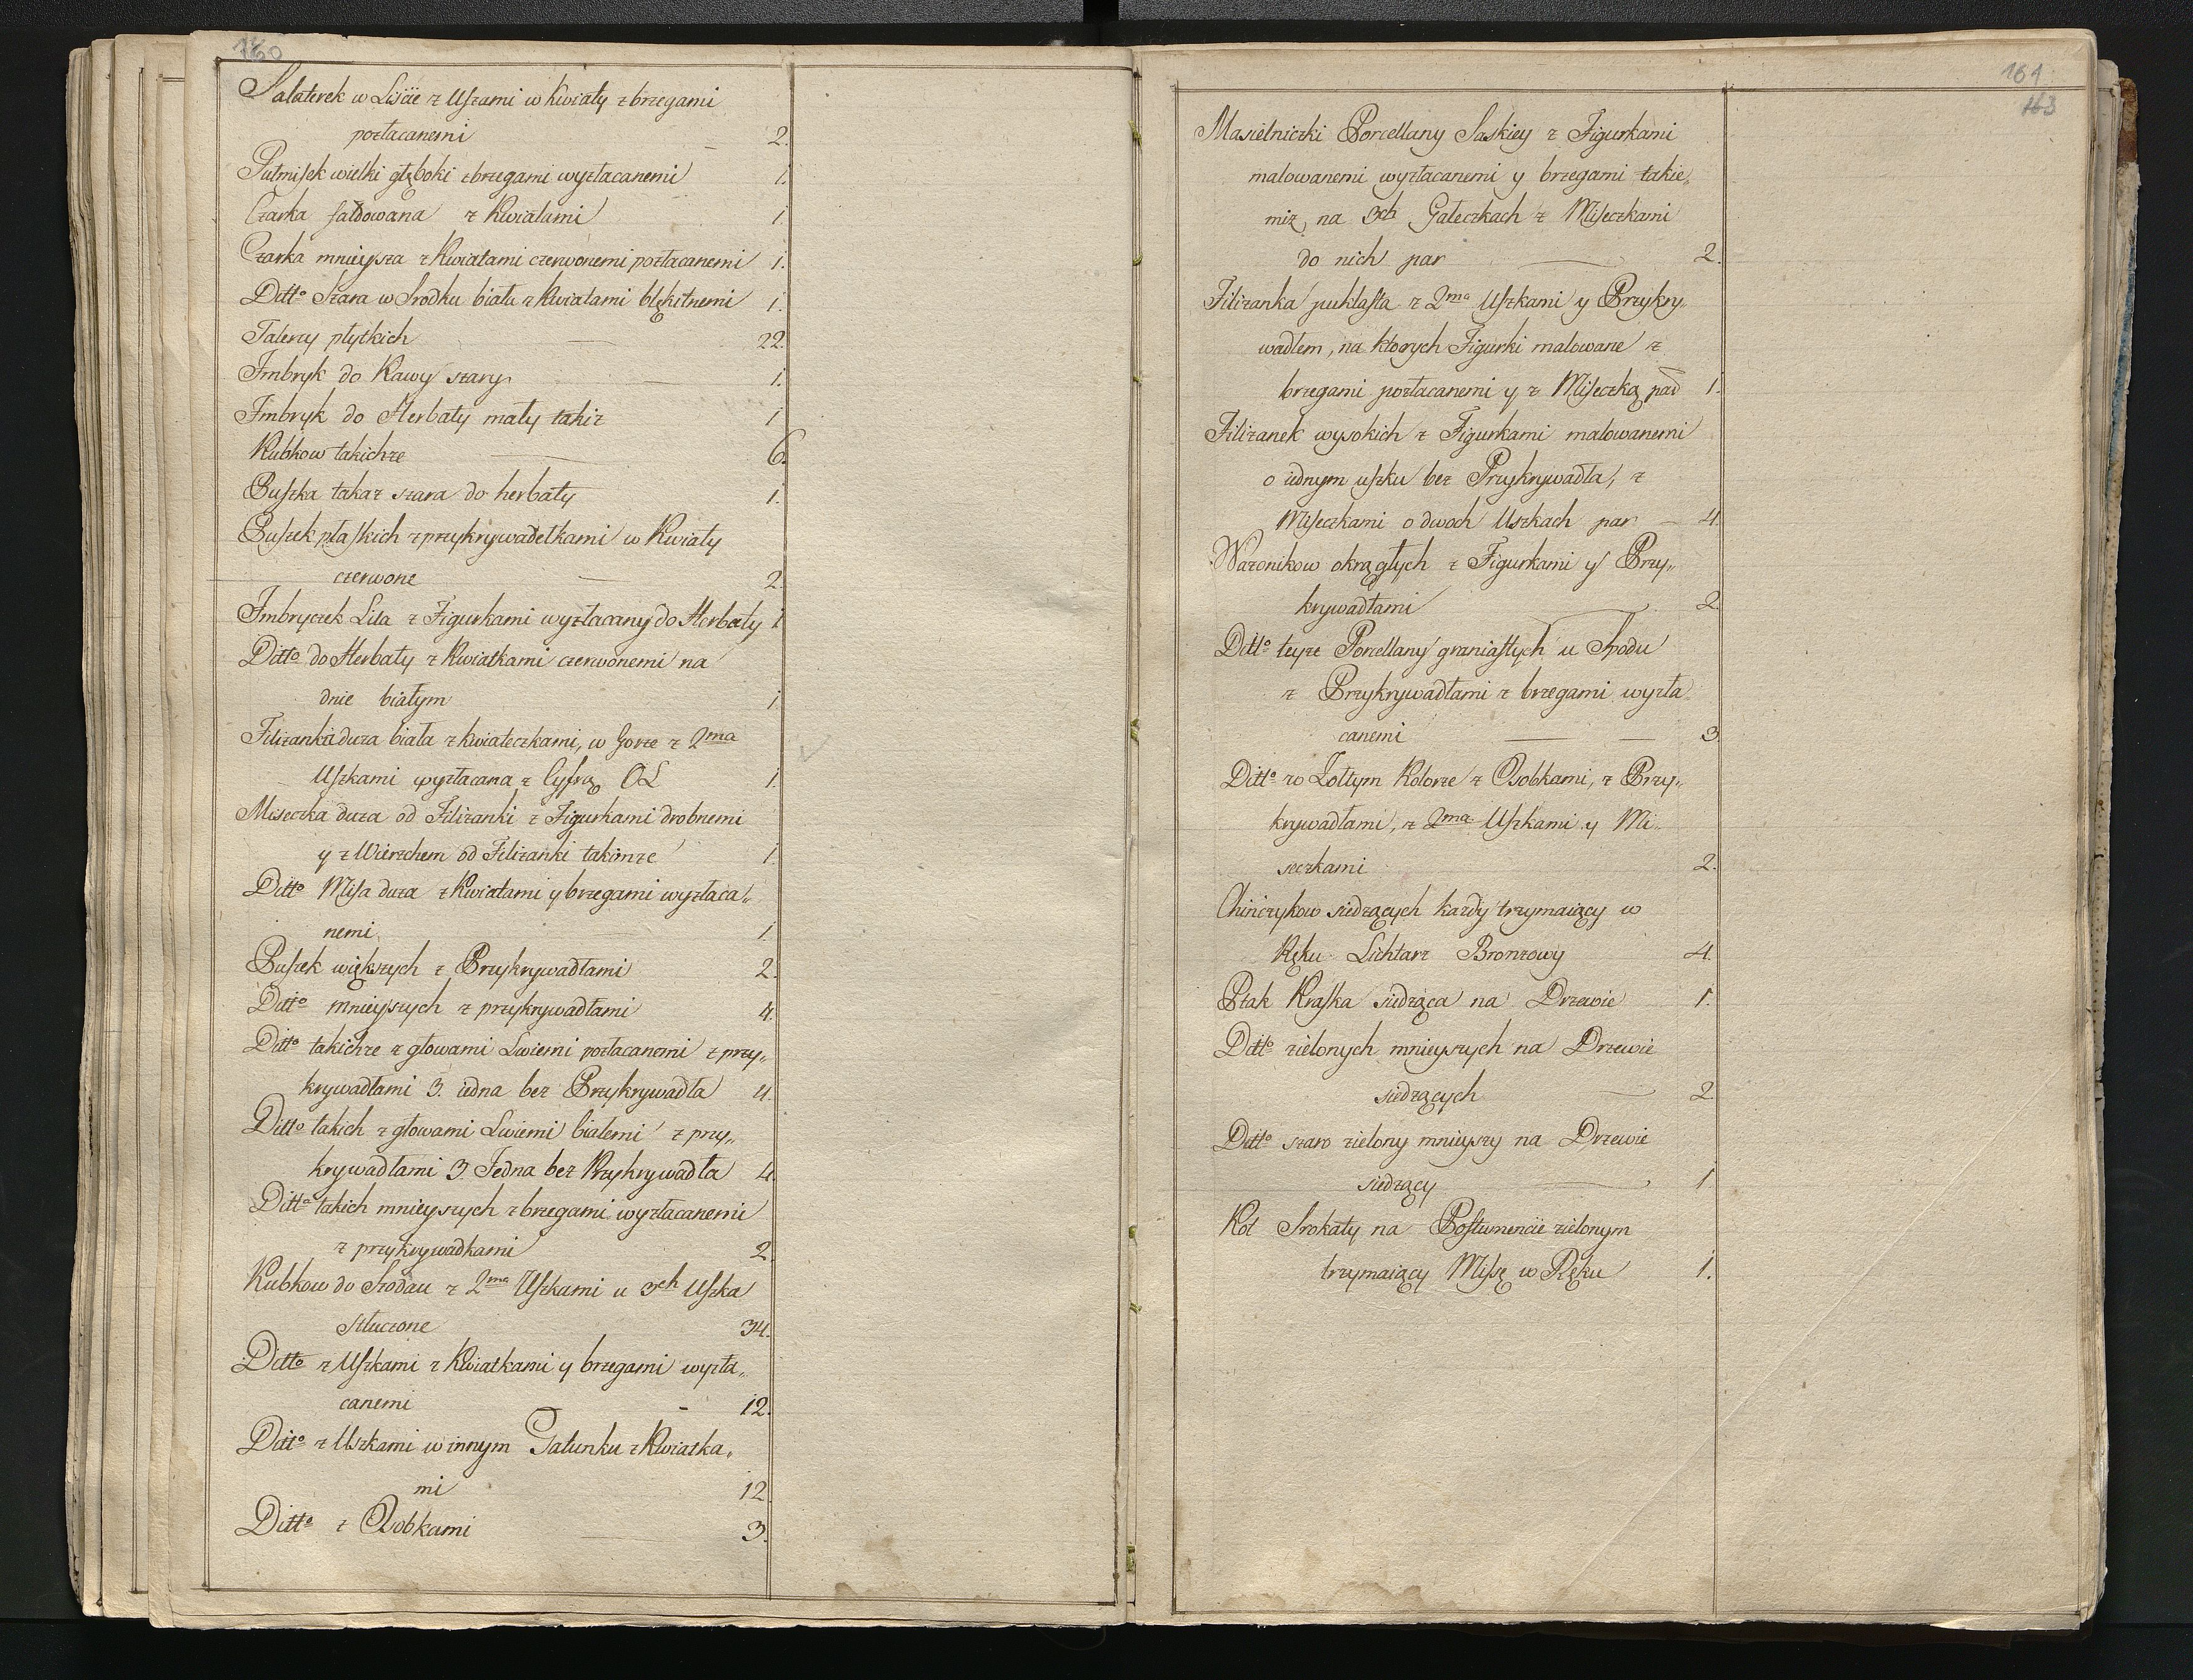 160
Salaterek w Liście z Uszami w kwiaty z brzegami
pozłacanemi - 2.
Pułmisek wielki głęboki z brzegami wyzłacanemi 1.
Czarka faldowana z Kwiatami 1.
Czarka mnieysza z Kwiatami czerwonemi pozłacanemi 1.
Ditto Szara w Srodku biała z Kwiatami błękitnemi 1.
Talerzy płytkich 22.
Jmbryk do Kawy szary 1.
Jmbryk do Herbaty mały takiż 1
Kubkow takichże 6.
Puszka takaż szara do herbaty 1.
Puszek płaskich z przykrywadełkami w Kwiaty
czerwone 2.
Jmbryczek Lila z Figurkami wyzłacany do Herbaty 1
Ditto do Herbaty z Kwiatkami czerwonemi na
dnie białym 1
Filiżanka duża biała z kwiateczkami, w Gorze z 2ma
Uszkami wyzłacana z Cyfrą OL 1.
Miseczka duża od Filiżanki z Figurkami drobnemi
y z Wierzchem od Filiżanki takimże 1.
Ditto Misa duża z Kwiatami y brzegami wyzłaca„
nemi 1.
Puszek większych z Przykrywadłami 2.
Ditto mnieyszych z przykrywadłami 4.
Ditto takichże z głowami Lwiemi pozłacanemi z przy„
krywadłami 3. iedna bez Przykrywadła 4.
Ditto takich z głowami Lwiemi białemi z przy„
krywadłami 3. Jedna bez Przykrywadła 4.
Ditto takich mnieyszych z brzegami wyzłacanemi
z przykrywadkami 2.
Kubkow do Szodau z 2ma Uszkami u 3ch Uszka
stłuczone 34.
Ditto z Uszkami z Kwiatkami y brzegami wyzła„
canemi - 12.
Ditto z Uszkami w innym Gatunku z Kwiatka„
mi 12
Ditto z Osobkami 3.
161
163
Masielniczki Porcellany Saskiey z Figurkami
malowanemi wyzłacanemi y brzegami takie„
miż, na 3ch Gałeczkach z Miseczkami
do nich par 2.
Filiżanka puklasta z 2ma Uszkami y Przykry„
wadłem, na ktorych Figurki malowane z
brzegami pozłacanemi y z Miseczką pad 1.
Filiżanek wysokich z Figurkami malowanemi
o iednym uszku bez Przykrywadła, z
Miseczkami o dwoch Uszkach par - 4.
Wazonikow okrągłych z Figurkami y Przy„
krywadłami 2.
Ditto teyże Porcellany graniastych u Spodu
z Przykrywadłami z brzegami wyzła
canemi 3.
Ditto w Żołtym Kolorze z Osobkami, z Przy„
krywadłami, z 2ma Uszkami y Mi„
seczkami 2.
Chińczykow siedzących każdy trzymaiący w
Ręku Lichtarz Bronzowy 4.
Ptak Kraska siedząca na Drzewie 1.
Ditto zielonych mnieyszych na Drzewie
siedzących 2.
Ditto szaro zielony mnieyszy na Drzewie
siedzący 1
Kot Srokaty na Postumencie zielonym
trzymaiący Misę w Ręku 1.